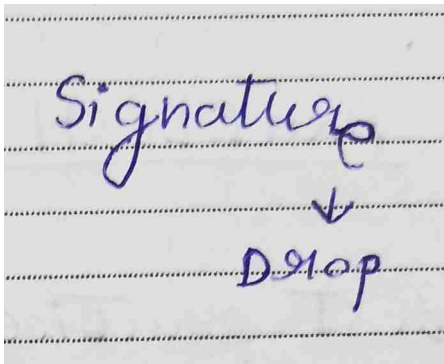 Signature
↓
Drop